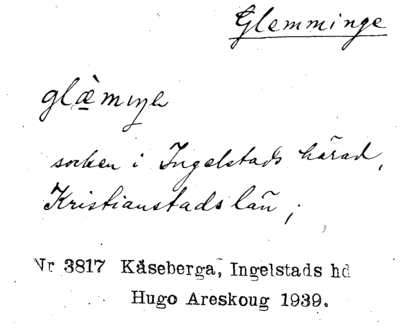 Glemminge
glæ̀miŋə
socken i Ingelstads härad,
Kristianstads län;
Nr 3817 Kåseberga, Ingelstads hd
Hugo Areskoug 1939.